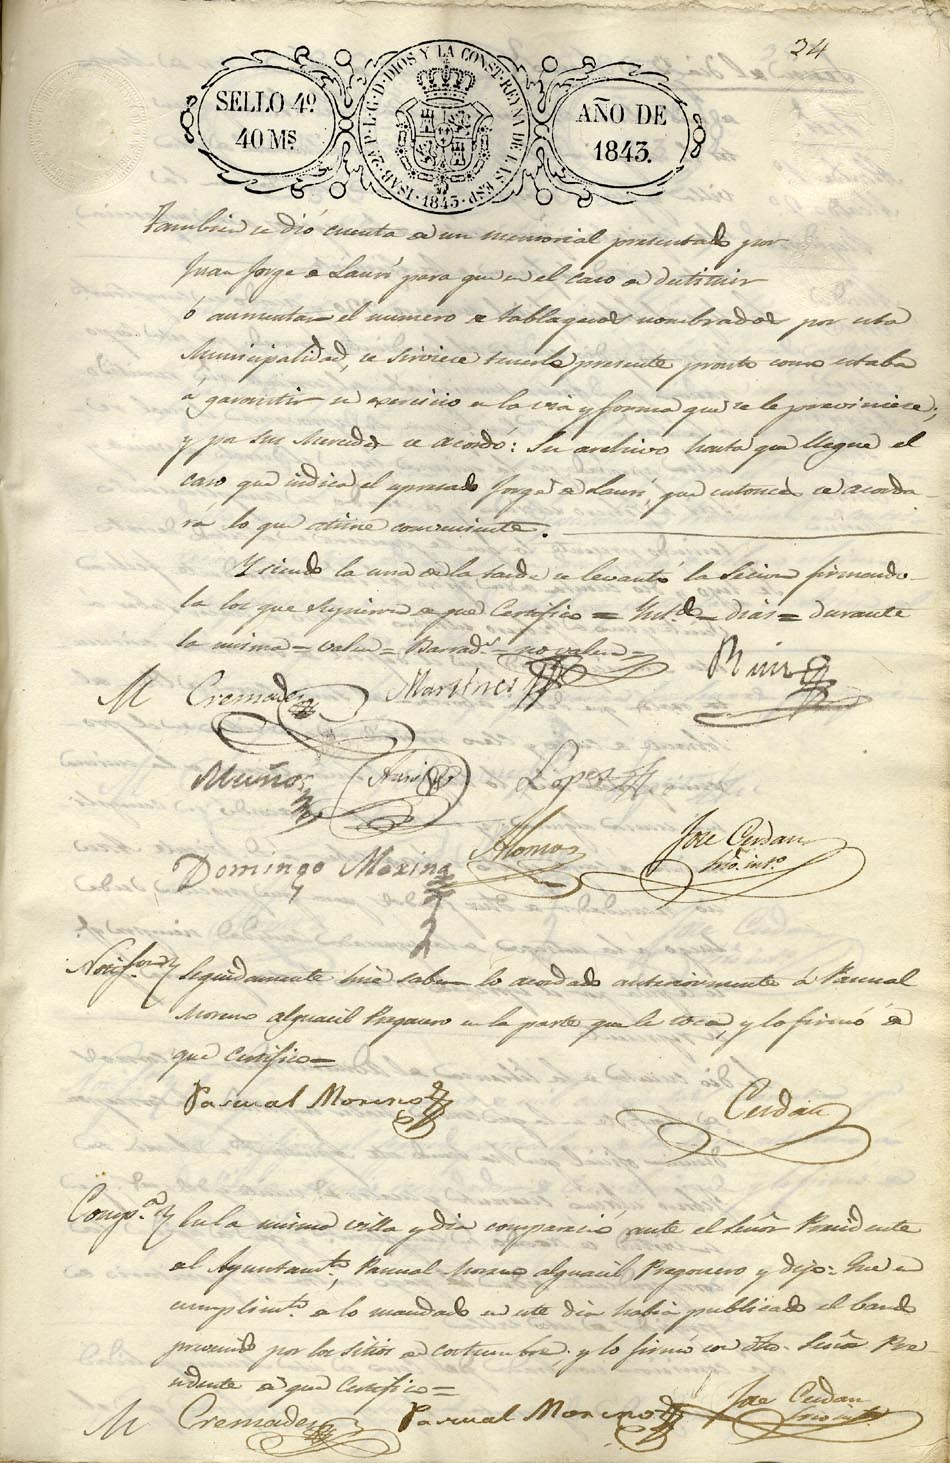 24
SELLO 4º
40 Mˢ
ISAB. 2ª P. L. G. D. DIOS Y LA CONST. REYNA DE LAS ESP. 1843.
AÑO DE
1843.
Tambien se dió cuenta de un memorial presentado por
Juan Jorge de Lauri para que en el caso de destituir
ó aumentar el numero de tablageros nombrados por esta
Municipalidad, se sirviese tenerle presente pronto como estaba
á garantir su exercicio en la via y forma que se le previniese;
y por sus Mercedes se acordó: Su archivo hasta que llegue el
caso que indica el expresado Jorge de Lauri, que entonces se acorda
rá lo que estime conveniente.
Y siendo la una de la tarde se levantó la Secion firmando
la los que supieron de que Certifico = dias = durante
la misma = valen = Barrados = no valen =
M Cremades Martinez Ruiz
Muñoz Lopez
Alonso Jose Cerdan
Srio. intº.
Domingo Mexina
Seguidamente hice saber lo acordado anteriormente á Pascual
Moreno alguacil Pregonero en la parte que le toca, y lo firmó de
que certifico =
Pascual Moreno Cerdan
Compª. En la misma villa y dia compareció ante el Señor Presidente
del Ayuntamtº. Pascual Moreno alguacil Pregonero y dijo: Que en
cumplimtº. de lo mandado en este dia habia publicado el bando
prevenido por los sitios de costumbre, y lo firmó con dho. Señor Pre
sidente de que Certifico =
M Cremades Pascual Moreno Jose Cerdan
Srio intº.